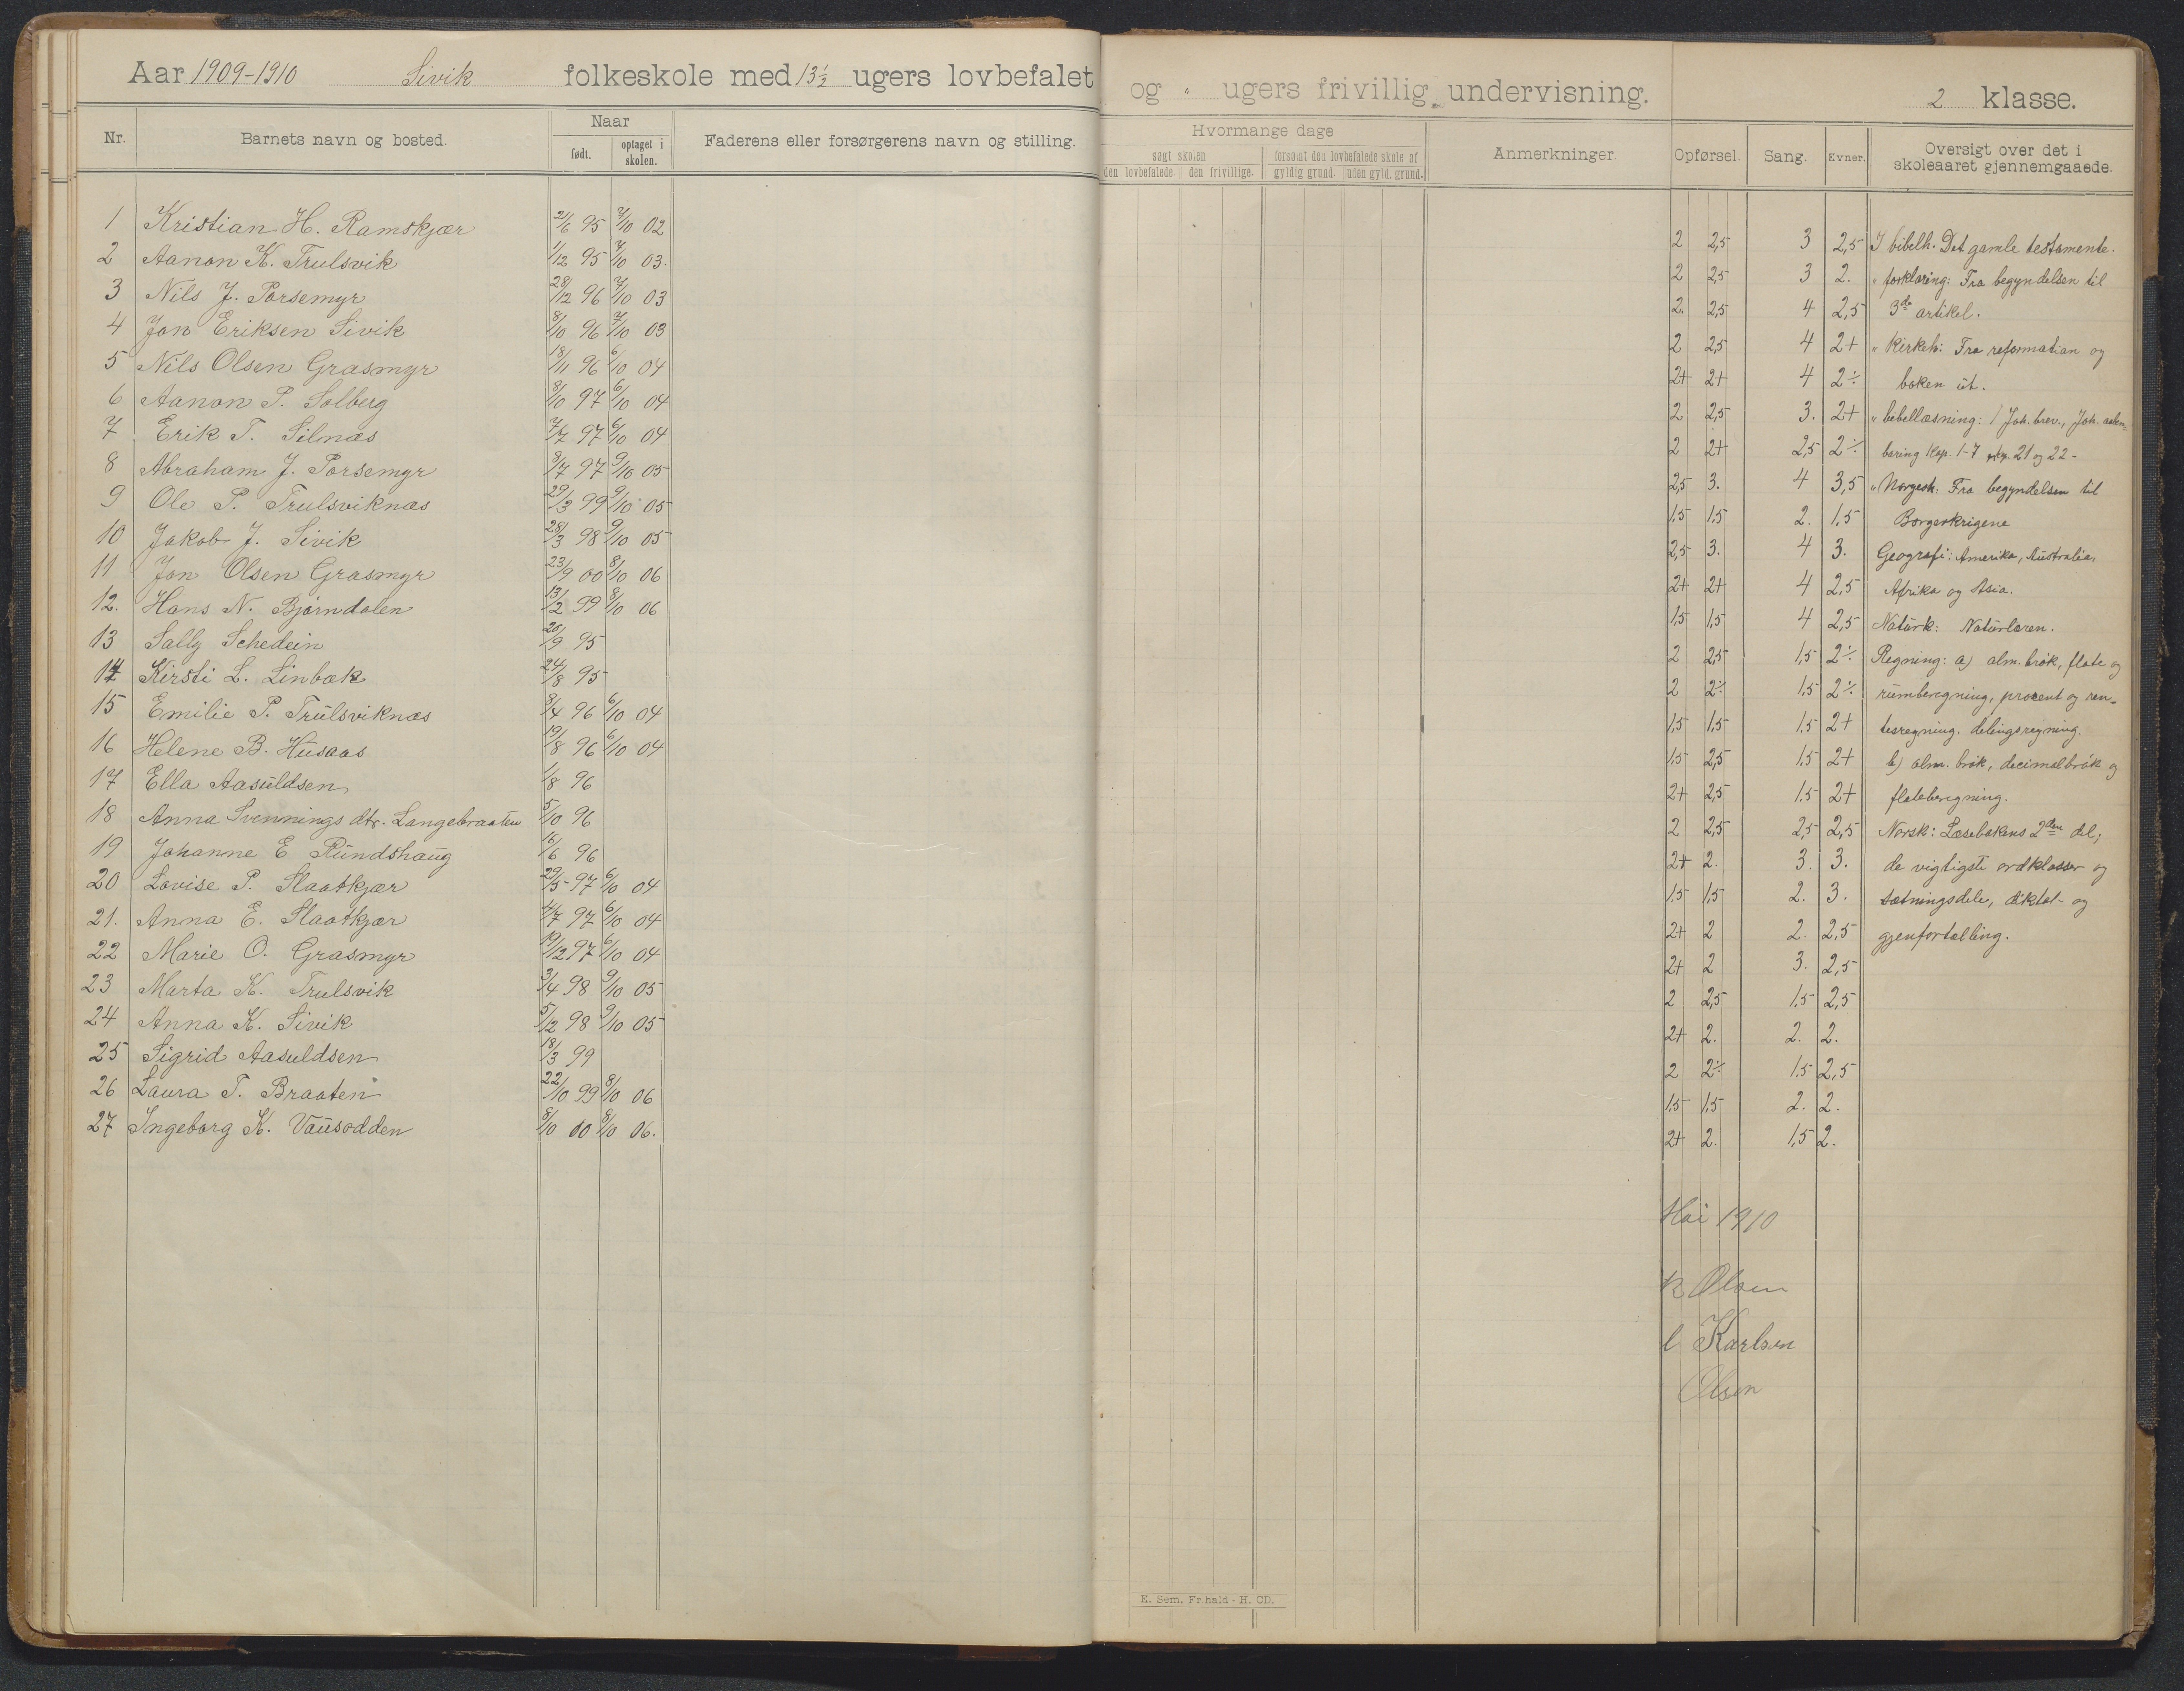 Aar 1909-1910 Sivik folkeskole med 13½ ugers lovbefalet og " ugers frivillig undervisning. 2 klasse.
Nr. Barnets navn og bosted. Naar født. optaget i skolen. Faderens eller forsørgerens navn og stilling.
Hvormange dage
søgt skolen den lovbefalede. den frivillige. forsømt den lovbefalede skole af gyldig grund. uden gyld. grund.
Anmerkninger. Opførsel. Sang. Evner. Oversigt over det i skoleaaret gjennemgaaede.
1 Kristian H. Ramskjær 2/6 95 7/10 02
2 Aanon K. Trulsvik 1/12 95 7/10 03.
3 Nils J. Porsemyr 28/12 96 7/10 03
4 Jon Eriksen Sivik 8/10 96 7/10 03
5 Nils Olsen Grasmyr 18/11 96 6/10 04
6 Aanon P. Solberg 8/10 97 6/10 04
7 Erik T. Silnæs 7/7 97 6/10 04
8 Abraham J. Porsemyr 8/7 97 9/10 05
9 Ole P. Trulsviknæs 29/3 99 9/10 05
10 Jakob J. Sivik 28/3 98 9/10 05
11 Jon Olsen Grasmyr 23/9 00 8/10 06
12. Hans N. Bjørndalen 13/2 99 8/10 06
13 Sally Schedein 20/9 95
14 Kirsti L. Linbæk 24/8 95
15 Emilie P. Trulsviknæs 8/4 96 6/10 04
16 Helene B. Husaas 19/8 96 6/10 04
17 Ella Aasuldsen 1/8 96
18 Anna Svennings dtr. Langebraaten 5/10 96
19 Johanne E Rundshaug 16/6 96
20 Lovise P. Slaatkjær 29/5 97 6/10 04
21. Anna E. Slaatkjær 4/7 97 6/10 04
22 Marie O. Grasmyr 19/12 97 6/10 04
23 Marta K. Trulsvik 3/4 98 9/10 05
24 Anna K. Sivik 5/12 98 9/10 05
25 Sigrid Aasuldsen 18/3 99
26 Laura T. Braaten 22/10 99 8/10 06
27 Ingeborg K. Vausodden 8/10 00 8/10 06.
2 2,5 3 2,5 I bibelh. Det gamle testamente.
2 2,5 3 2. " forklaring: Fra begyndelsen til
2. 2,5 4 2,5 3de artikel.
2 2,5 4 2+ " Kirkeh: Fra reformation og
2+ 2+ 4 2÷ boken ut.
2 2,5 3. 2+ " bibellæsning: 1 Joh. brev., Joh. aaben-
2 2+ 2,5 2÷ baring Kap. 1-7 og 21 og 22-
2,5 3. 4 3,5 " Norgesh: Fra begyndelsen til
1,5 1,5 2. 1,5 Borgerkrigene
2,5 3. 4 3. Geografi: Amerika, Australia,
2+ 2+ 4 2,5 Afrika og Asia.
1,5 1,5 4 2,5 Naturk: Naturlæren.
2 2,5 1,5 2÷ Regning: a) alm. brøk, flate og
2 2÷ 1,5 2÷ rumberegning, procent og ren-
1,5 1,5 1,5 2+ tesregning. delingsregning.
1,5 2,5 1,5 2+ b) alm. brøk, decimalbrøk og
2+ 2,5 1,5 2+ flateberegning.
2 2,5 2,5 2,5 Norsk: Læsebokens 2den del;
2+ 2. 3. 3. de vigtigste ordklasser og
1,5 1,5 2. 3. sætningsdele, diktat- og
2+ 2 2. 2,5 gjenfortælling.
2+ 2 3. 2,5
2 2,5 1,5 2,5
2+ 2. 2. 2.
2 2÷ 1,5 2,5
1,5 1,5 2. 2.
2+ 2. 1,5 2.
Mai 1910
Olsen
Karlsen
Olsen
E. Sem. Fr.hald - H. CD.